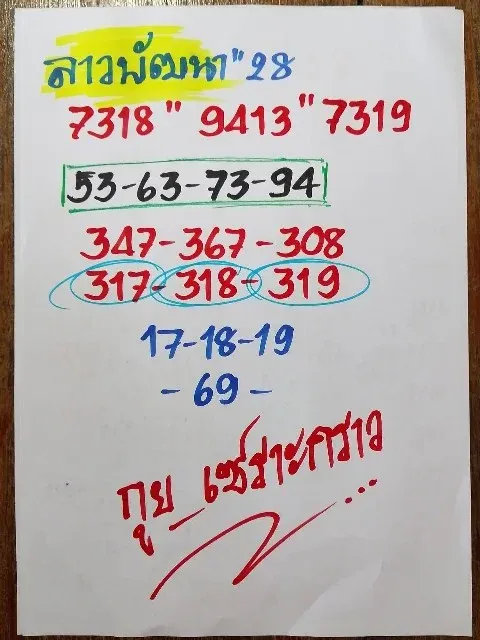 ลาวพัฒนา"28
7318" 9413" 7319
53-63-73-94
347-367-308
317-318-319
17-18-19
-69-
กูย_เซราะกราว...